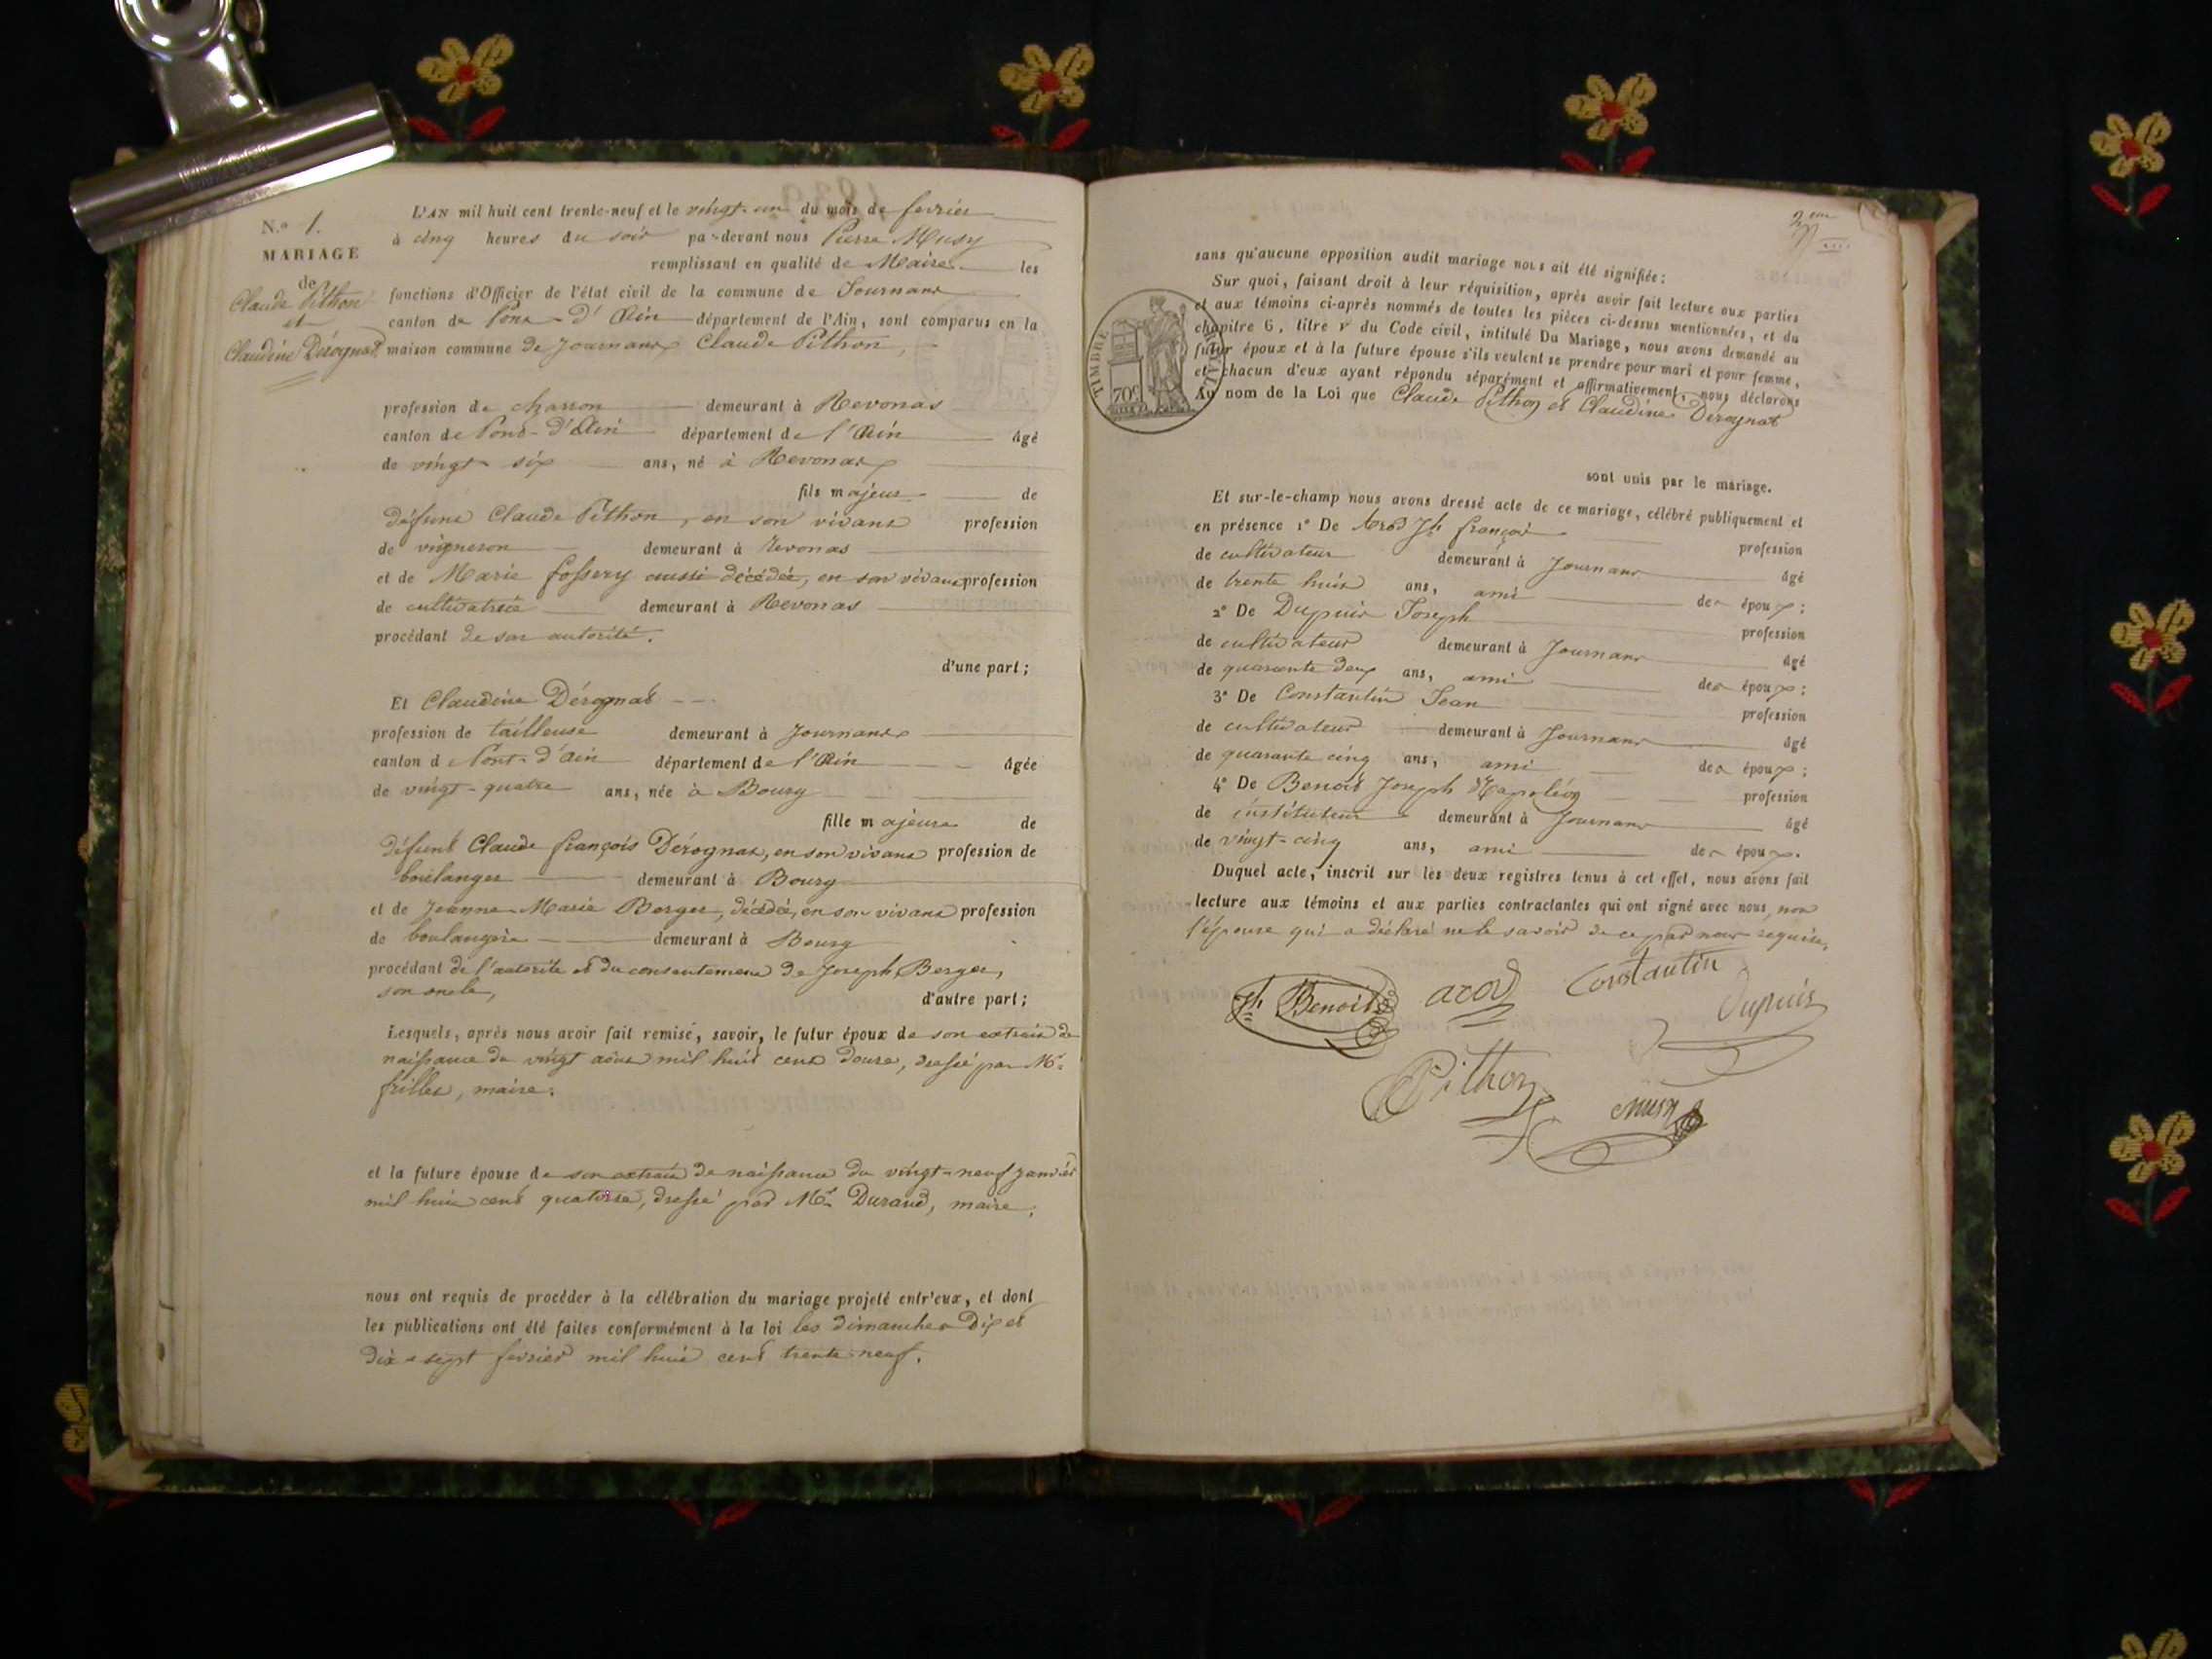 N.º 1.
MARIAGE
de
Claude Pithon
et
Claudine Dérognat
L'AN mil huit cent trente-neuf et le vingt-un du mois de fevrier
à cinq heures du soir par-devant nous Pierre Musy
remplissant en qualité de Maire les
fonctions d'Officier de l'état civil de la commune de Journans
canton de Pont-d'Ain département de l'Ain, sont comparus en la
maison commune de Journans Claude Pithon,
profession de charron demeurant à Revonas
canton de Pont-d'Ain département de l'Ain âgé
de vingt-six ans, né à Revonas
fils majeur de
défunt Claude Pithon, en son vivant profession
de vigneron demeurant à Revonas
et de Marie fossery aussi décédée, en son vivant profession
de cultivatrice demeurant à Revonas
procédant de son autorité.
d'une part;
Et Claudine Dérognat
profession de tailleuse demeurant à Journans
canton de Pont-d'Ain département de l'Ain âgée
de vingt-quatre ans, née à Bourg
fille majeure de
défunt Claude françois Dérognat, en son vivant profession de
boulanger demeurant à Bourg
et de Jeanne-Marie Berger, décédée, en son vivant profession
de boulangère demeurant à Bourg
procédant de l'autorité et du consentement de Joseph Berger,
son oncle, d'autre part;
Lesquels, après nous avoir fait remise, savoir, le futur époux de son extrait de
naissance du vingt août mil huit cent douze, dressé par Mr.
frillet, maire.
et la future épouse de son extrait de naissance du vingt-neuf janvier
mil huit cent quatorze, dressé par Mr. Durand, maire;
nous ont requis de procéder à la célébration du mariage projeté entr'eux, et dont
les publications ont été faites conformément à la loi les dimanches Dix et
dix-sept fevrier mil huit cent trente-neuf.
sans qu'aucune opposition audit mariage nous ait été signifiée:
Sur quoi, faisant droit à leur réquisition, après avoir fait lecture aux parties
et aux témoins ci-après nommés de toutes les pièces ci-dessus mentionnées, et du
chapitre 6, titre v du Code civil, intitulé Du Mariage, nous avons demandé au
futur époux et à la future épouse s'ils veulent se prendre pour mari et pour femme,
et chacun d'eux ayant répondu séparément et affirmativement, nous déclarons
Au nom de la Loi que Claude Pithon et Claudine Dérognat
TIMBRE ROYAL
70c
sont unis par le mariage.
Et sur-le-champ nous avons dressé acte de ce mariage, célébré publiquement et
en présence 1º De Jh françois profession
de cultivateur demeurant à Journans âgé
de trente huit ans, ami des époux;
2º De Dupuis Joseph profession
de cultivateur demeurant à Journans âgé
de quarante deux ans, ami des époux;
3º De Constantin Jean profession
de cultivateur demeurant à Journans âgé
de quarante cinq ans, ami des époux;
4º De Benoit Joseph Napoléon profession
de instituteur demeurant à Journans âgé
de vingt-cinq ans, ami des époux.
Duquel acte, inscrit sur les deux registres tenus à cet effet, nous avons fait
lecture aux témoins et aux parties contractantes qui ont signé avec nous, non
l'épouse qui a déclaré ne le savoir de ce par nous requise.
Jh Benoit
Constantin
Dupuis
Pithon
Musy